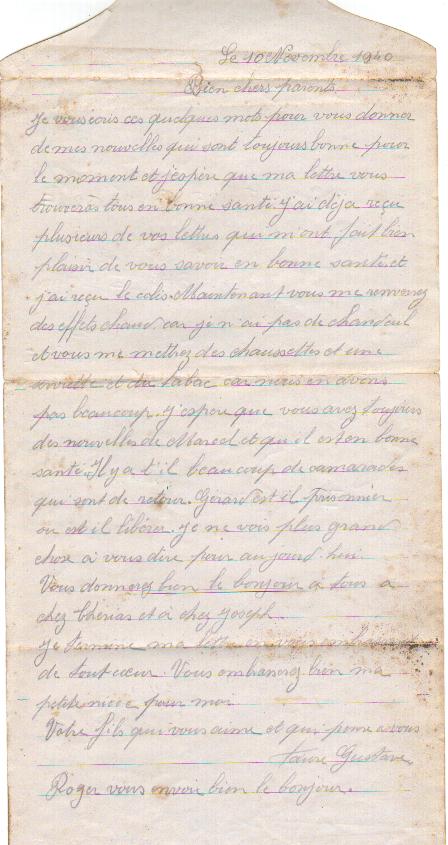 Le 10 Novembre 1940
Bien chers parents
Je vous ecris ces quelques mots pour vous donner
de mes nouvelles qui sont toujours bonne pour
le moment et j'espère que ma lettre vous
trouveras tous en bonne santé. j'ai déja reçu
plusieurs de vos lettres qui m'ont fait bien
plaisir de vous savoir en bonne santé et
j'ai reçu le colis. Maintenant vous me renverrez
des effets chaud car je n'ai pas de chandail
et vous me mettrez des chaussettes et une
serviette et du tabac car nous en avons
pas beaucoup. j'espère que vous avez toujours
des nouvelles de Marcel et qu'il est en bonne
santé. Il y a t'il beaucoup de camarades
qui sont de retour. Gérard est il prisonnier
ou est il libérer. je ne vois plus grand
chose à vous dire pour aujourd'hui
Vous donnerez bien le bonjour à tous a
chez Thérias et à chez Joseph.
Je termine ma lettre en vous embrassant
de tout cœur. Vous embrasserez bien ma
petite niece pour moi
Votre fils qui vous aime et qui pense a vous
Faure Gustave
Roger vous envoi bien le bonjour.